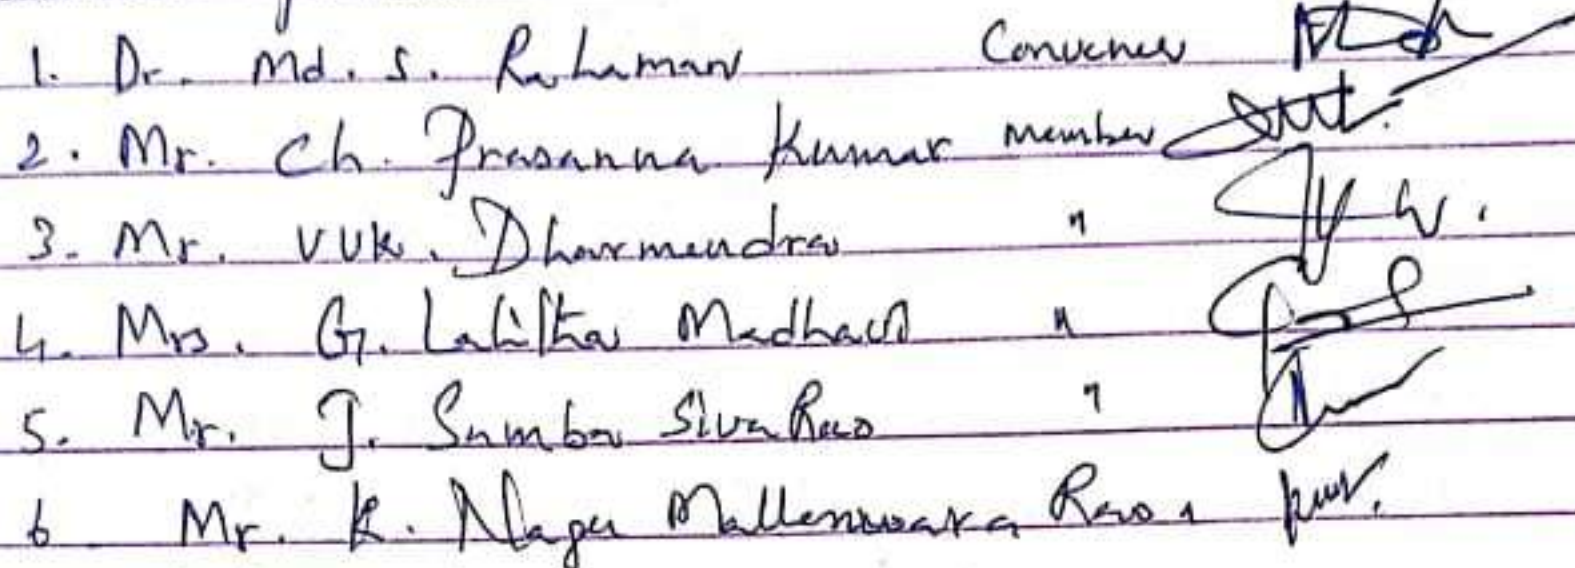 1. Dr. Md. S. Rahaman Convener
2. Mr. Ch. Prasanna Kumar member
3. Mr. VVK. Dharmendra "
4. Mrs. G. Lalitha Madhavi "
5. Mr. J. Samba Siva Rao "
6 Mr. K. Naga Malleswara Rao "